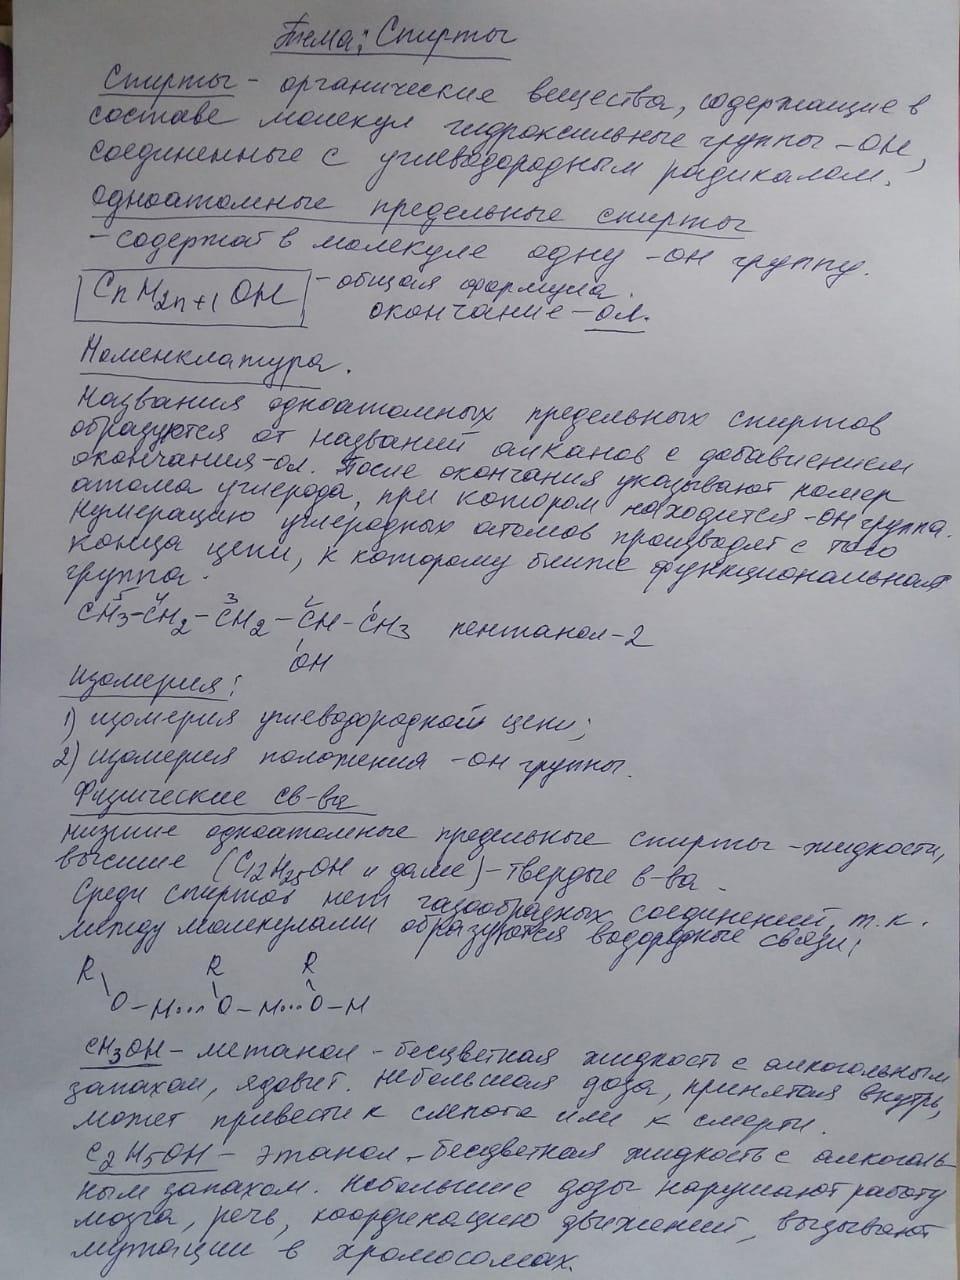 Тема: Спирты
Спирты - органические вещества, содержащие в
составе молекул гидроксильные группы -ОН,
соединенные с углеводородным радикалом.
Одноатомные предельные спирты
- содержат в молекуле одну -ОН группу.
CnH2n+1OH - общая формула.
окончание -ол.
Номенклатура.
Названия одноатомных предельных спиртов
образуются от названий алканов с добавлением
окончания -ол. После окончания указывают номер
атома углерода, при котором находится -ОН группа.
Нумерацию углеродных атомов производят с того
конца цепи, к которому ближе функциональная
группа.
5 4 3 2 1
CH3-CH2-CH2-CH-CH3 пентанол-2
OH
Изомерия:
1) изомерия углеводородной цепи;
2) изомерия положения -ОН группы.
Физические св-ва
Низшие одноатомные предельные спирты - жидкости,
высшие (C12H25OH и далее) - твердые в-ва.
Среди спиртов нет газообразных соединений, т.к.
между молекулами образуются водородные связи:
R R R
O-H...O-H...O-H
CH3OH - метанол - бесцветная жидкость с алкогольным
запахом, ядовит. Небольшая доза, принятая внутрь,
может привести к слепоте или к смерти.
C2H5OH - этанол - бесцветная жидкость с алкоголь-
ным запахом. Небольшие дозы нарушают работу
мозга, речь, координацию движений, вызывают
мутации в хромосомах.